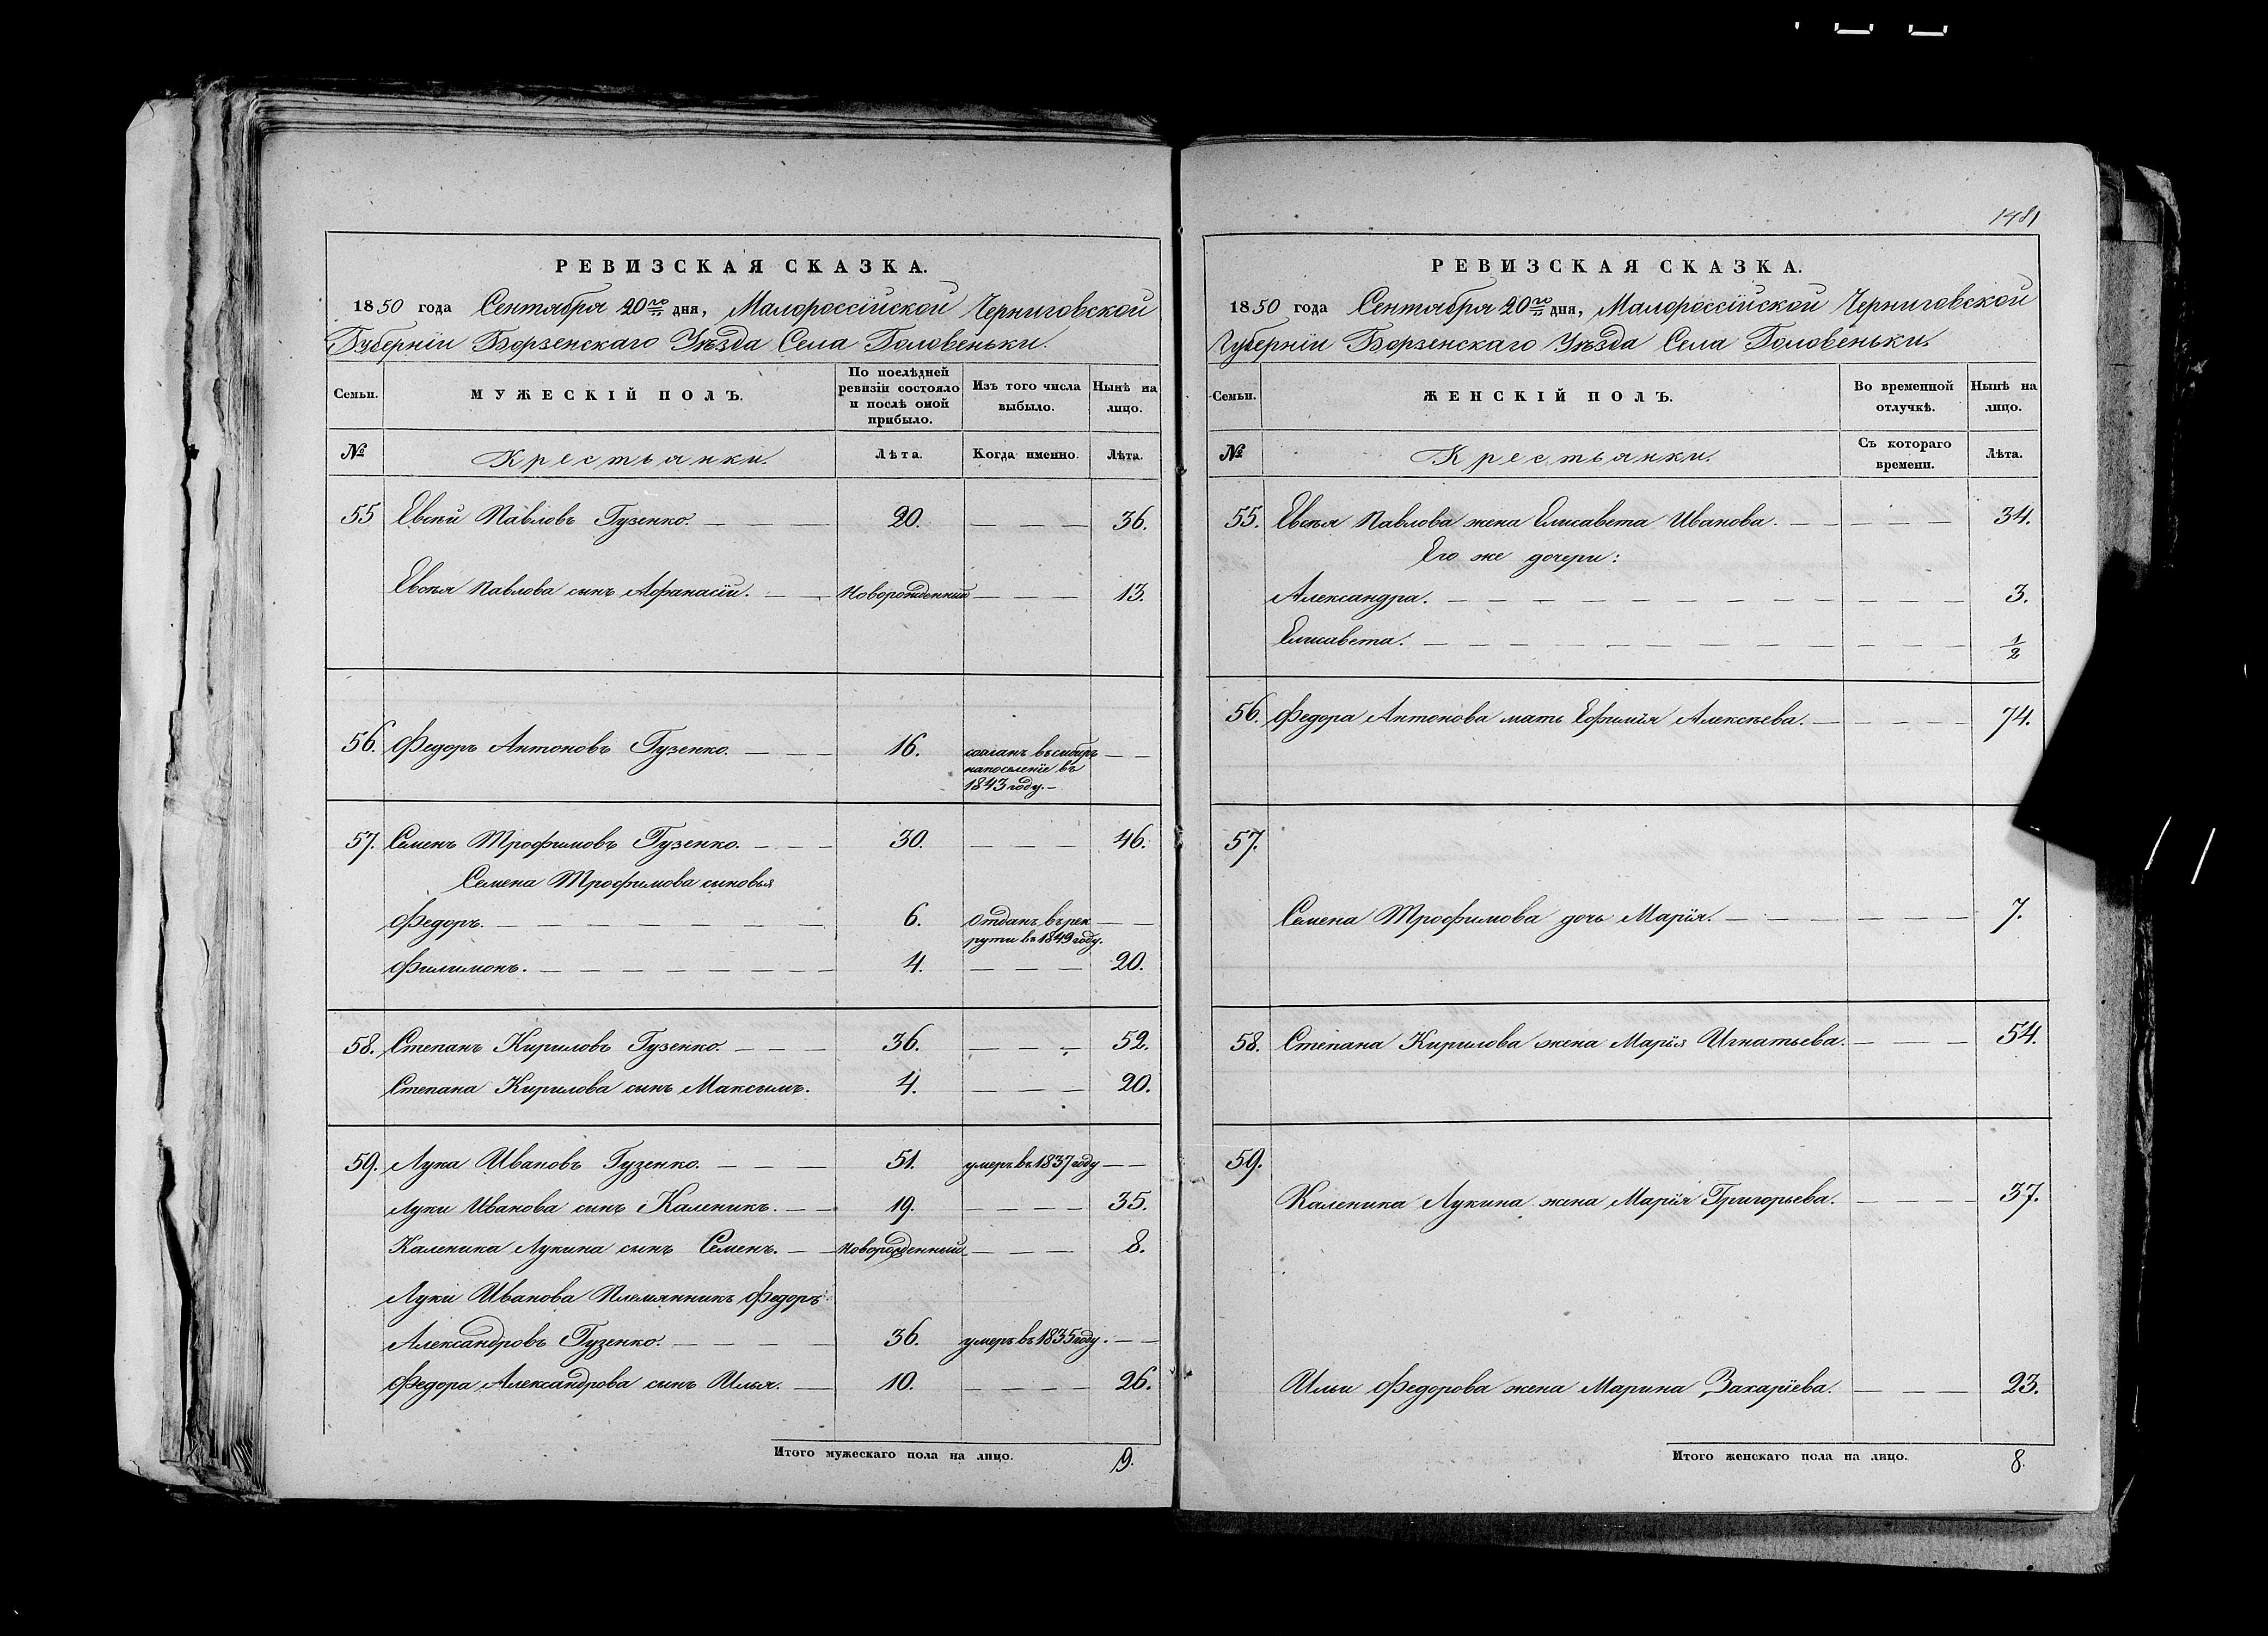 РЕВИЗСКАЯ СКАЗКА.
1850 года Сентября 20го дня, Малороссійской Черниговской
Губерніи Борзенскаго Уѣзда Села Головеньки.
Семьи. МУЖЕСКІЙ ПОЛЪ. По послѣдней ревизіи состояло и послѣ оной прибыло. Изъ того числа выбыло. Нынѣ на лицо.
№ Крестьянки. Лѣта. Когда именно. Лѣта.
55 Евсѣй Павловъ Гузенко. 20. 36.
Евсѣя Павлова сынъ Афанасій. Новорожденный 13.
56. Федоръ Антоновъ Гузенко. 16. сосланъ въ сибирь
на поселеніе въ
1843 году.
57. Семенъ Трофимовъ Гузенко. 30. 46.
Семена Трофимова сыновья
Федоръ. 6. Отданъ въ рек
руты въ 1849 году.
Филимонъ. 4. 20.
58. Степанъ Кириловъ Гузенко. 36. 52.
Степана Кирилова сынъ Максымъ. 4. 20.
59. Лука Ивановъ Гузенко. 51. умеръ въ 1837 году
Луки Иванова сынъ Каленикъ. 19. 35.
Каленика Лукина сынъ Семенъ. Новорожденный 8.
Луки Иванова Племянникъ Федоръ
Александровъ Гузенко. 36. умеръ въ 1835 году.
Федора Александрова сынъ Илья. 10. 26.
Итого мужескаго пола на лицо. 9.
1481
РЕВИЗСКАЯ СКАЗКА.
1850 года Сентября 20го дня, Малороссійской Черниговской
Губерніи Борзенскаго Уѣзда Села Головеньки.
Семьи. ЖЕНСКІЙ ПОЛЪ. Во временной отлучкѣ. Нынѣ на лицо.
№ Крестьянки. Съ котораго времени. Лѣта.
55. Евсѣя Павлова жена Елисавета Иванова. 34.
Его же дочери:
Александра. 3.
Елисавета. 1/2
56. Федора Антонова мать Ефимія Алексѣева. 74.
57.
Семена Трофимова дочь Марія. 7.
58. Степана Кирилова жена Марія Игнатьева. 54.
59.
Каленика Лукина жена Марія Григорьева. 37.
Ильи Федорова жена Марина Захаріева. 23.
Итого женскаго пола на лицо. 8.